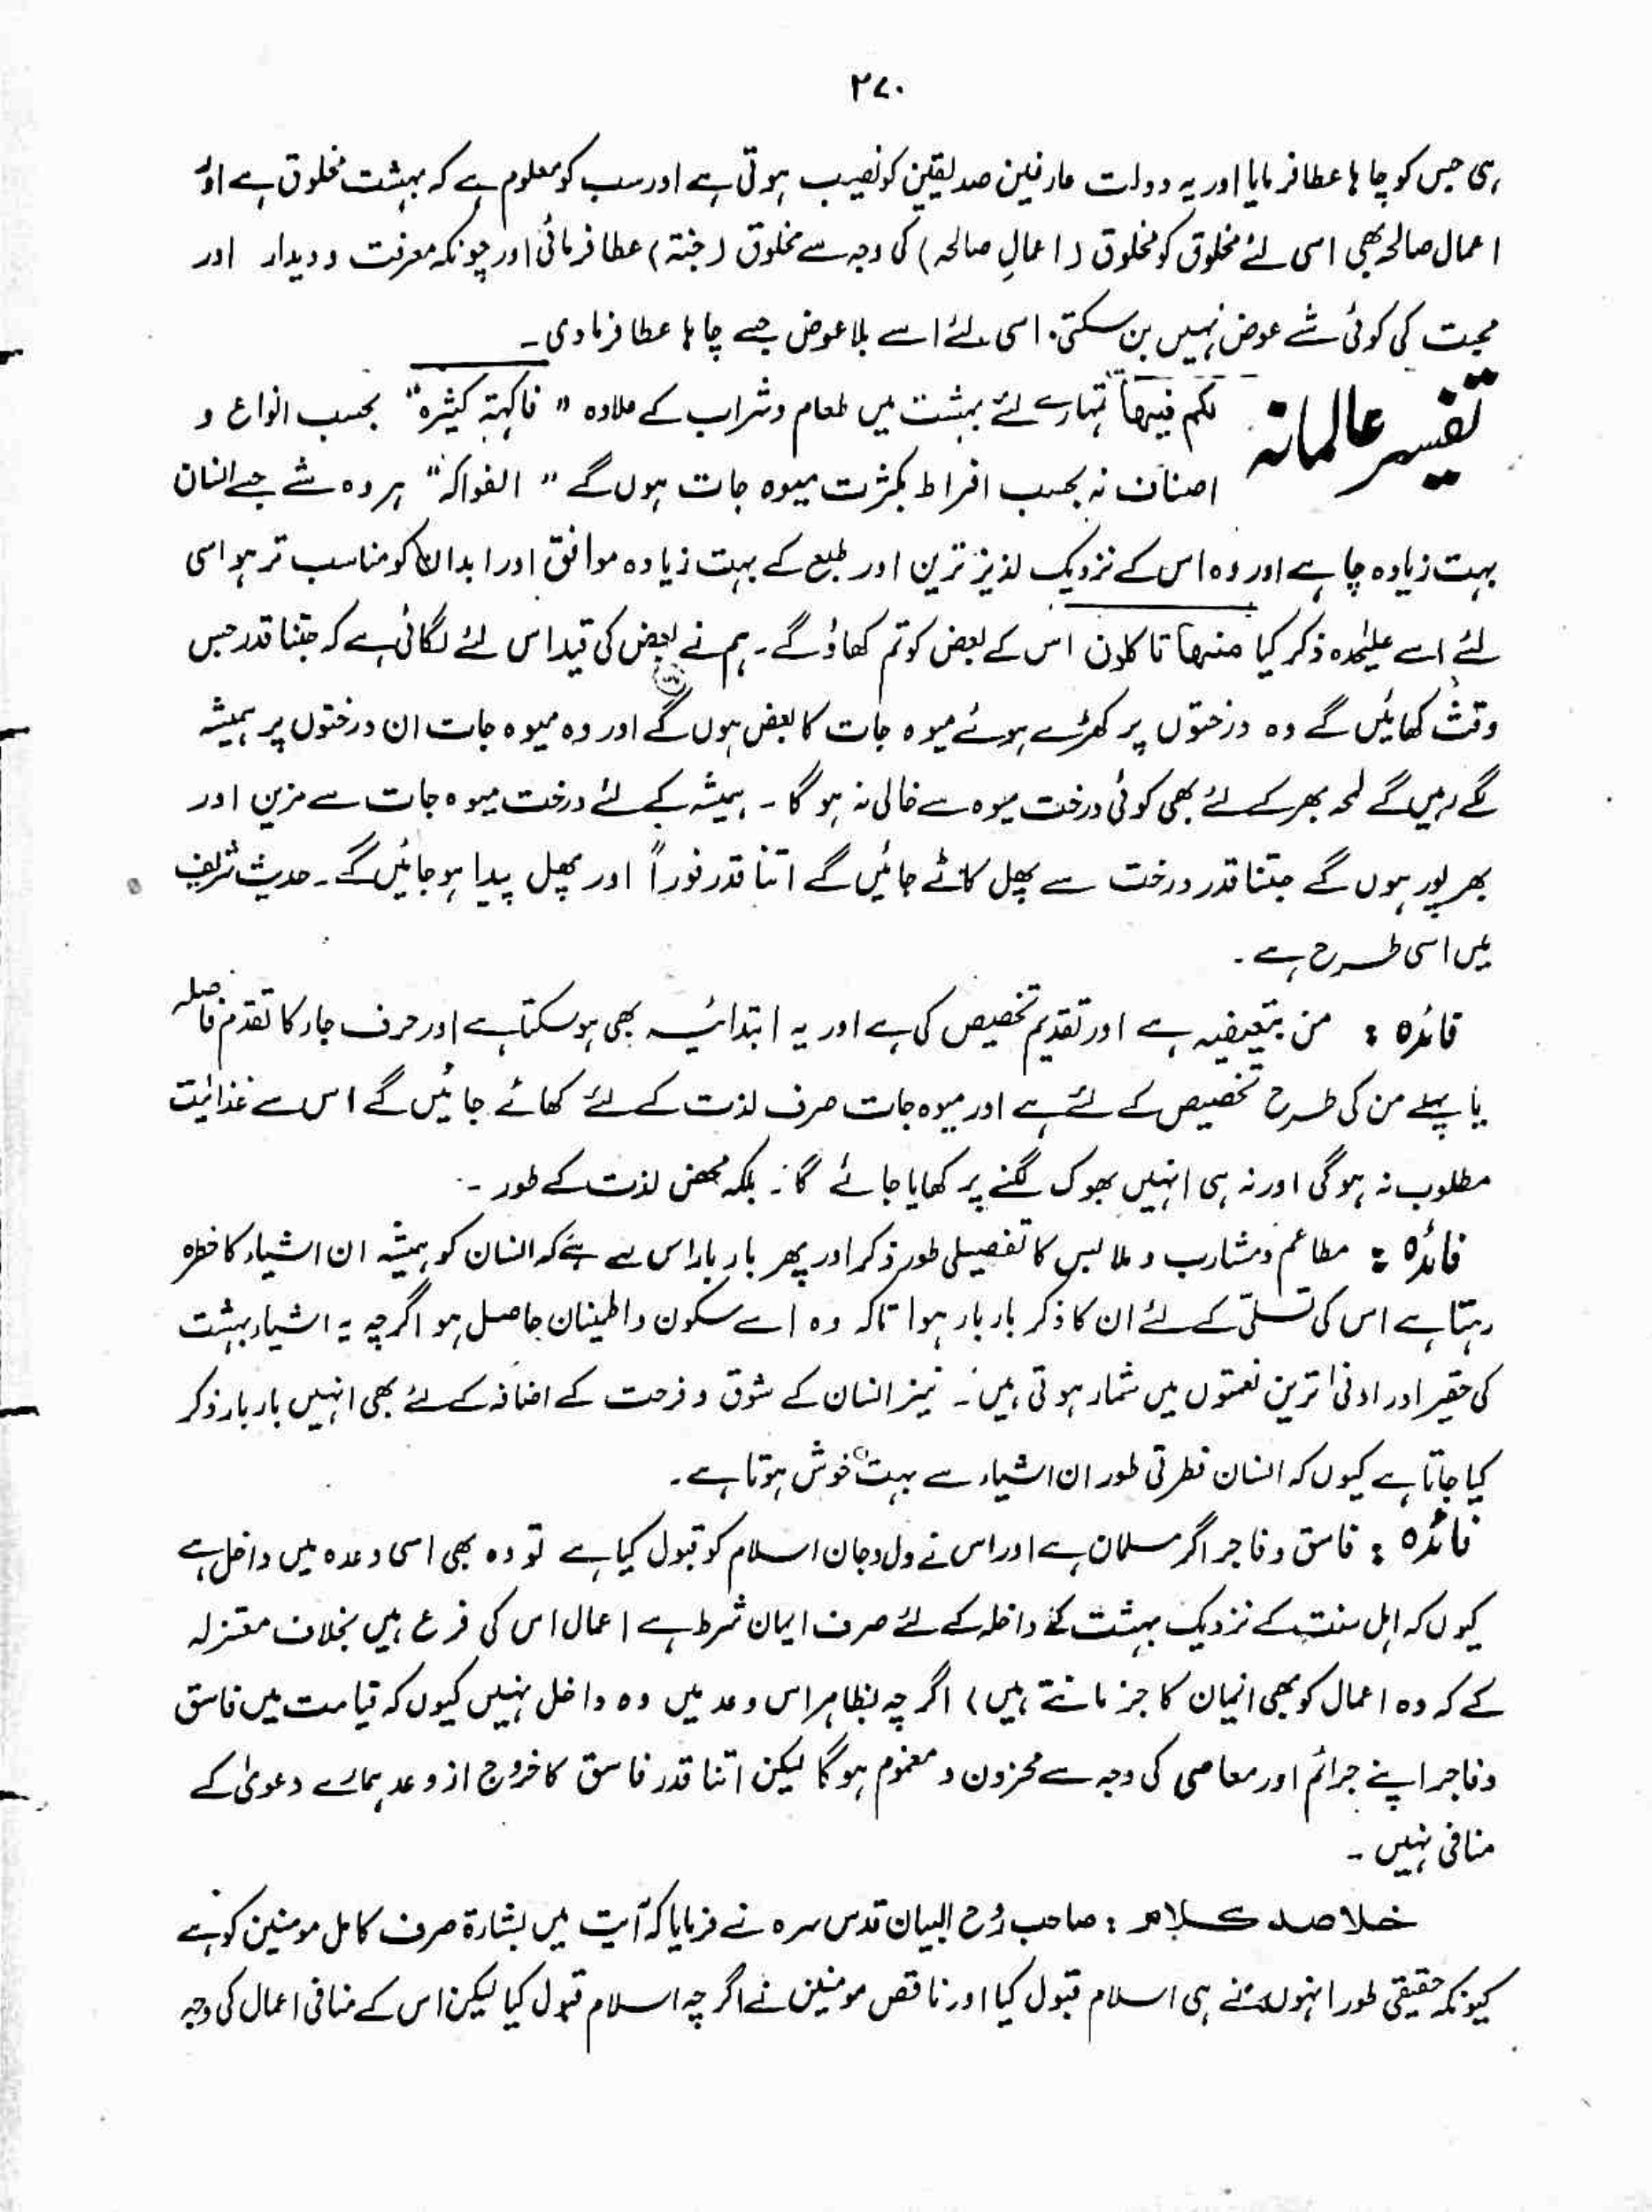 ۲۷۰
ہی جس کو چاہا عطا فرمایا اور یہ دولت عارفین صدیقین کو نصیب ہوتی ہے اور سب کو معلوم ہے کہ بہشت مخلوق ہے اور
اعمال صالحہ بھی اسی لئے مخلوق کو مخلوق (اعمالِ صالحہ) کی وجہ سے مخلوق (جنۃ) عطا فرمائی اور چونکہ معرفت و دیدار اور
محبت کی کوئی شے عوض نہیں بن سکتی۔ اسی لئے اسے بلا عوض جسے چاہا عطا فرما دی۔
تفسیر عالمانہ لکم فیھا تمہارے لئے بہشت میں طعام و شراب کے علاوہ " فاکہۃ کثیرہ" بحسب انواع و
اصناف نہ بحسب افراط بکثرت میوہ جات ہوں گے " الفواکہ" ہر وہ شے جسے انسان
بہت زیادہ چاہے اور وہ اس کے نزدیک لذیز ترین اور طبع کے بہت زیادہ موافق اور ابدان کو مناسب تر ہو اسی
لئے اسے علیٰحدہ ذکر کیا منھا تاکلون اس کے بعض کو تم کھاؤ گے۔ ہم نے بعض کی قید اس لئے لگائی ہے کہ جتنا قدر جس
وقت کھائیں گے وہ درختوں پر کھڑے ہوئے میوہ جات کا بعض ہوں گے اور وہ میوہ جات ان درختوں پر ہمیشہ
لگے رہیں گے لمحہ بھر کے لئے بھی کوئی درخت میوہ سے خالی نہ ہو گا۔ ہمیشہ کے لئے درخت میوہ جات سے مزین اور
بھر پور ہوں گے جتنا قدر درخت سے پھل کاٹے جائیں گے اتنا قدر فوراً اور پھل پیدا ہو جائیں گے۔ حدیث شریف
میں اسی طرح ہے۔
فائدہ : من تبعیضیہ ہے اور تقدیم تخصیص کی ہے اور یہ ابتدائیہ بھی ہو سکتا ہے اور حرف جار کا تقدم فاصلہ
یا پہلے من کی طرح تخصیص کے لئے ہے اور میوہ جات صرف لذت کے لئے کھائے جائیں گے اس سے غذائیت
مطلوب نہ ہو گی اور نہ ہی انہیں بھوک لگنے پر کھایا جائے گا۔ بلکہ محض لذت کے طور ۔
فائدہ : مطاعم و مشارب و ملابس کا تفصیلی طور ذکر اور پھر بار بار اس سے ہے کہ انسان کو ہمیشہ ان اشیاء کا خطرہ
رہتا ہے اس کی تسلّی کے لئے ان کا ذکر بار بار ہوا تاکہ وہ اسے سکون و اطمینان حاصل ہو اگرچہ یہ اشیاء بہشت
کی حقیر اور ادنیٰ ترین نعمتوں میں شمار ہوتی ہیں۔ نیز انسان کے شوق و فرحت کے اضافہ کے لئے بھی انہیں بار بار ذکر
کیا جاتا ہے کیوں کہ انسان فطرتی طور ان اشیاء سے بہت خوش ہوتا ہے۔
فائدہ : فاسق و فاجر اگر مسلمان ہے اور اس نے دل و جان اسلام کو قبول کیا ہے تو وہ بھی اسی وعدہ میں داخل ہے
کیوں کہ اہل سنت کے نزدیک بہشت کے داخلہ کے لئے صرف ایمان شرط ہے اعمال اس کی فرع ہیں بخلاف معتزلہ
کے کہ وہ اعمال کو بھی ایمان کا جز مانتے ہیں) اگرچہ بظاہر اس وعد میں وہ داخل نہیں کیوں کہ قیامت میں فاسق
و فاجر اپنے جرائم اور معاصی کی وجہ سے محزون و مغموم ہوگا لیکن اتنا قدر فاسق کا خروج از وعد ہمارے دعویٰ کے
منافی نہیں ۔
خلاصہ کلام : صاحب رُوح البیان قدس سرہ نے فرمایا کہ آیت میں بشارۃ صرف کامل مومنین کو ہے
کیونکہ حقیقی طور انہوں نے ہی اسلام قبول کیا اور ناقص مومنین نے اگرچہ اسلام قبول کیا لیکن اس کے منافی اعمال کی وجہ